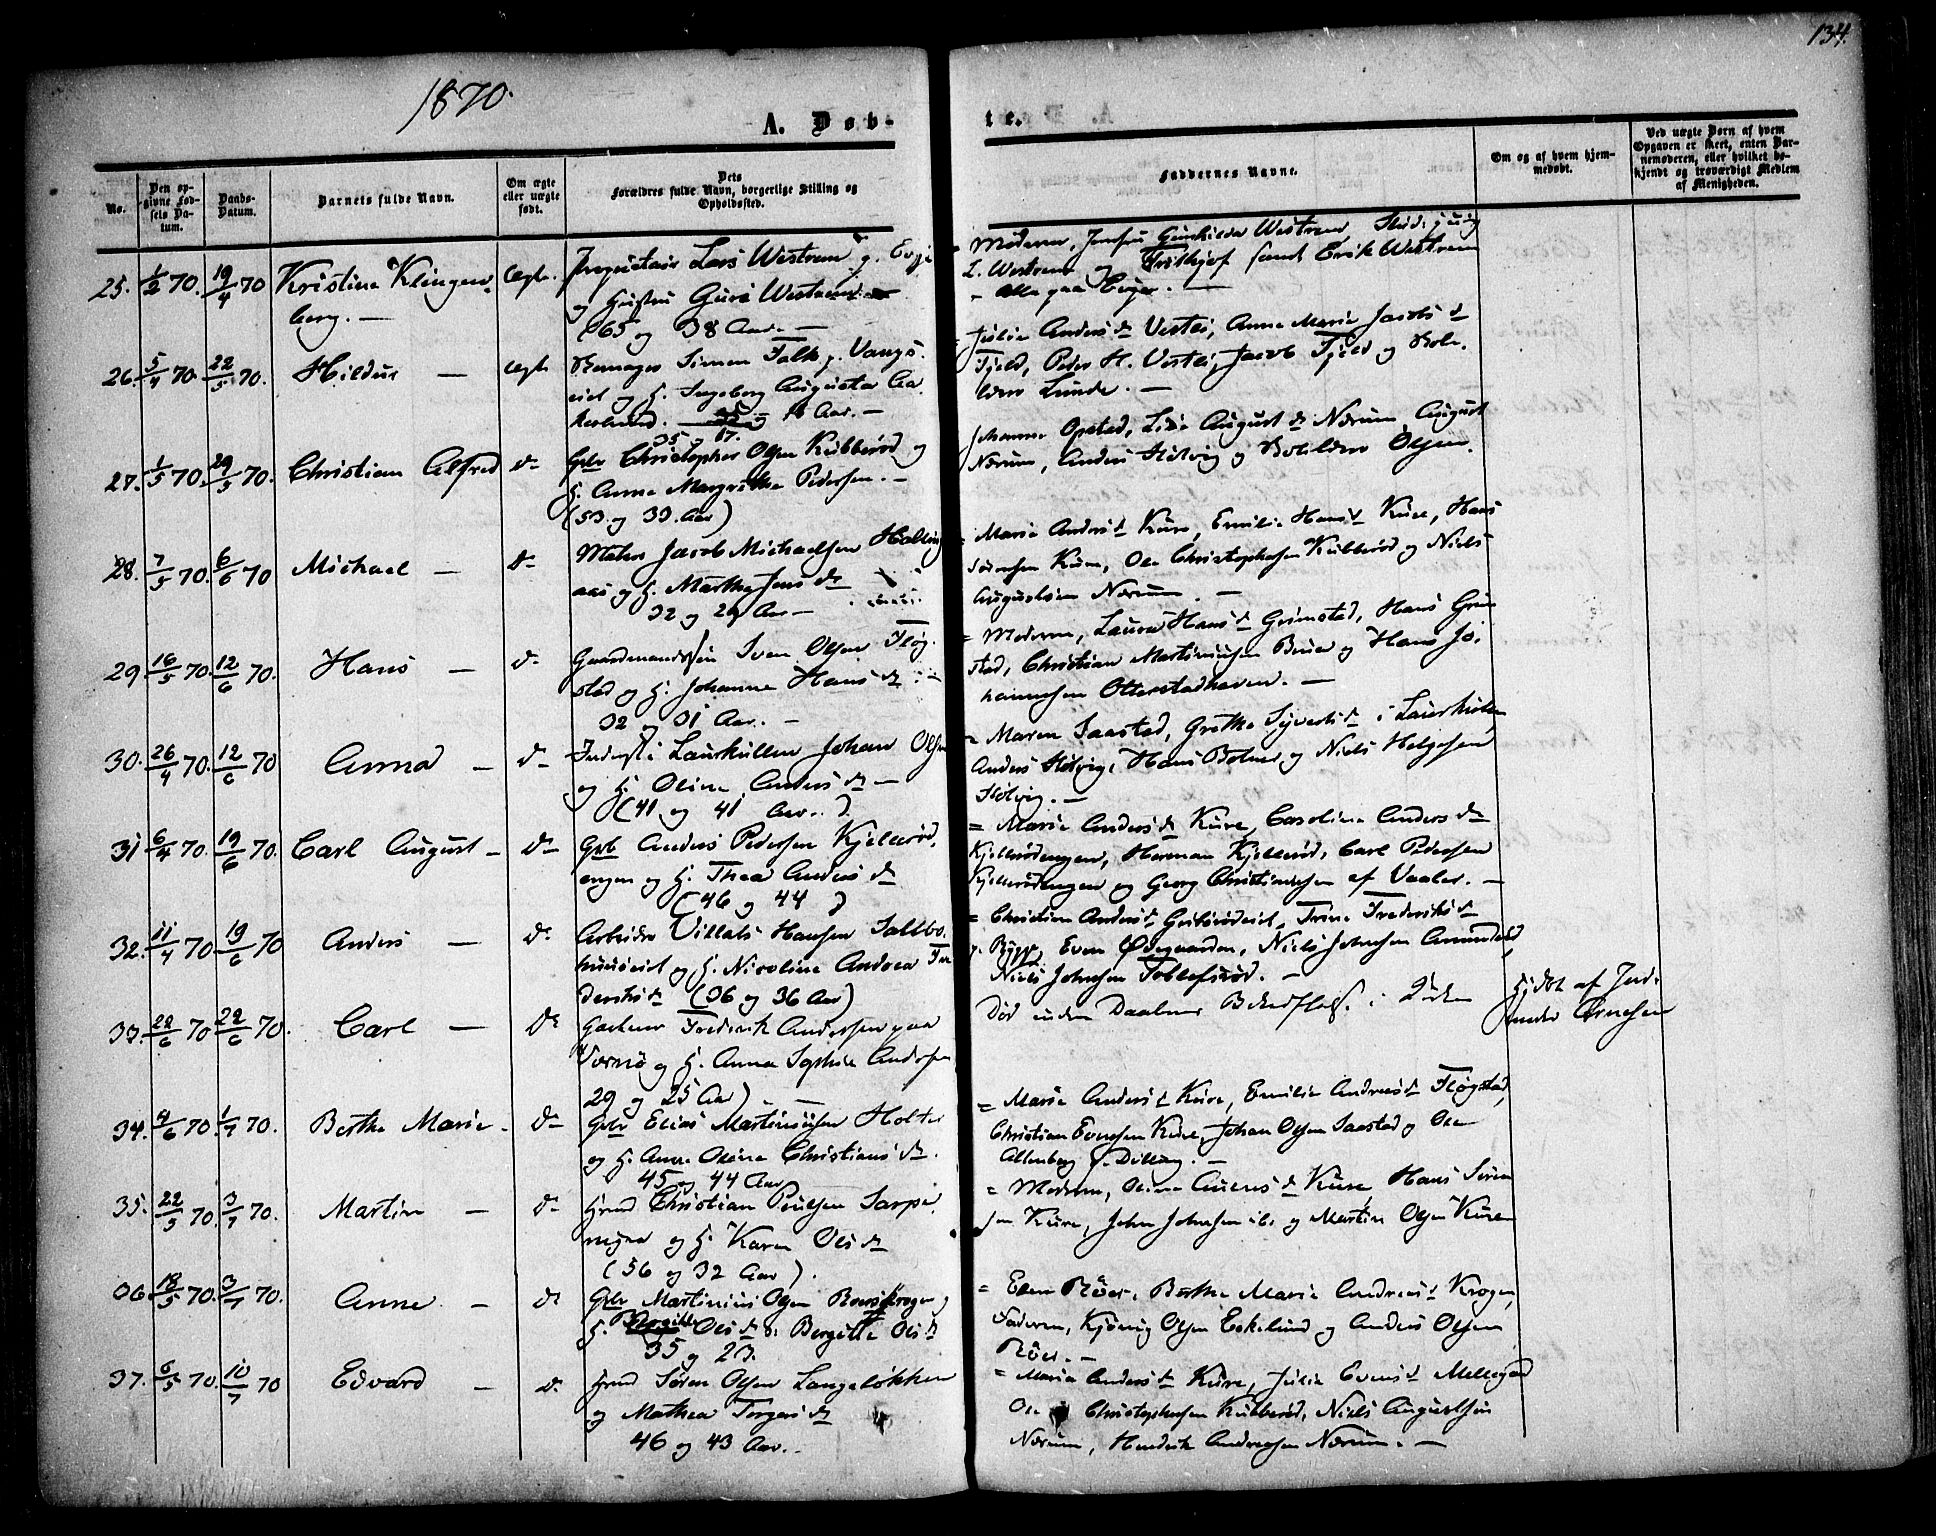 134.
1870.
A. Døb-
te.
No.
Den opgivne Fødsels Datum.
Daabs-Datum.
Barnets fulde Navn.
Om ægte eller uægte født.
Dets Forældres fulde Navn, borgerlige Stilling og Opholdssted.
Faddernes Navne.
Om og af hvem hjemmedøbt.
Ved uægte Børn af hvem Opgaven er skeet, enten Barnemoderen, eller hvilket bekjendt og troværdigt Medlem af Menigheden.
25. 1/2 70. 19/4 70 Kristine Klingen-
berg. —
ægte. Proprietair Lars Westrum p. Evje
og Hustru Guri Westrum
(65 og 38 Aar. —
= Moderen, Jomfru Gunhilda Westrum
L. Westrum og Frithjof samt Erik Westrum
- alle paa Evje. —
26. 5/4 70. 22/5 70. Hildur — ægte
Simen Falk p. Vangs-
eiet og H. Ingeborg Augusta
35 og 17.
= Julie Anders d. Vestli, Anne Marie Jacobs d.
Fjeld, Peder H. Vestli, Jacob Fjeld og
Lunde. —
27. 1/5 70. 29/5 70. Christian Alfred do
Gbr Christopher Olsen Kubberød og
H. Anne Margrethe Pedersen. —
(53 og 33. Aar)
Johanne Opstad, August d. Nærum, August
Nærum, Anders Hølvig og Olsen.
28. 7/5 70. 6/6 70 Michael — do
Jacob Michaelsen
aas og H. Marthe Jens d.
32 og 29 Aar —
= Marie Anders d. Kure, Emilie Hans d. Kure, Hans
Sørensen Kure, Ole Christophersen Kubberød og Niels
Augustsen Nærum. —
29. 16/5 70. 12/6 70. Hans — do
Gaardmandssøn Iven Olsen Fløg-
stad og H. Johanne Hans d.
32 og 31 Aar. —
= Moderen, Laura Hans d. Grimstad, Hans Grim-
stad, Christian Martinusen og Hans Jo-
hannesen Otterstadhaven. —
30. 26/4 70. 12/6 70 Anna — do
Inderst i Laurkullen Johan Olsen
og H. Oline Anders d. —
(41 og 41 Aar.)
= Maren Saastad, Grethe Syverts d. i Laurkullen
Anders Hølvig, Hans og Niels Helgesen
Hølvig. —
31 6/4 70. 19/6 70. Carl August — do
Gbr Anders Pedersen Kjellerød-
engen og H. Thea Anders d.
(46 og 44)
= Marie Anders d. Kure, Caroline Anders d.
Kjellerødengen, Herman Kjellerød, Carl Pedersen
Kjellerødengen og Georg Christiansen af Vaaler. —
32. 11/4 70. 19/6 70 Anders — do
Arbeider Hansen
og H. Nicoline Andrea Fre-
deriks d. (36 og 36 Aar)
= Christine Anders d. Trine Frederiks d.
p. Rygge, Even Ødegaarden, Niels Johnsen
Niels Johnsen Tollefsrød. —
33. 22/6 70 22/6 70. Carl — do
Gartner Frederik Andersen paa
Værnø og H. Anna Sophie Andersen
29 og 25 Aar) —
Død inden Daabens Bekræftelse i Kirken
Hjdbt af Jord-
moder Arnesen
34. 4/6 70. 1/7 70. Berthe Marie — do
Gbr Elias Martinusen Holter
og H. Anne Oline Christians d.
45 og 44 Aar
= Marie Anders d. Kure, Emilie Andreas d. Fløgstad,
Christian Evensen Kure, Johan Olsen Saastad og Ole
Altenborg p. Dilling. —
35. 22/5 70. 3/7 70. Martin — do
Hmd Christian Poulsen Sarpe-
og H. Karen Ols d.
(56 og 32 Aar).
= Moderen, Oline d. Kure Hans Søren-
sen Kure, John Johnsen ib. og Martin Olsen Kure
36. 18/5 70. 3/7 70. Anne — do
Gbr Martinius Olsen
H. Bergitte Ols d. Bergitte Ols d.
35 og 23.
= Even Røer, Berthe Marie Andreas d. Krogen,
Faderen, Olsen Eskelund og Anders Olsen
Røer. —
37. 6/5 70. 10/7 70 Edvard — do
Hmd Søren Olsen Langeløkken
og Mathea Torgers d.
46 og 43 Aar.
= Marie Anders d. Kure, Julie Evens d.
Ole Christophersen Kubberød, Niels Augustsen
Nærum, Hendrik Andreasen Nærum. —